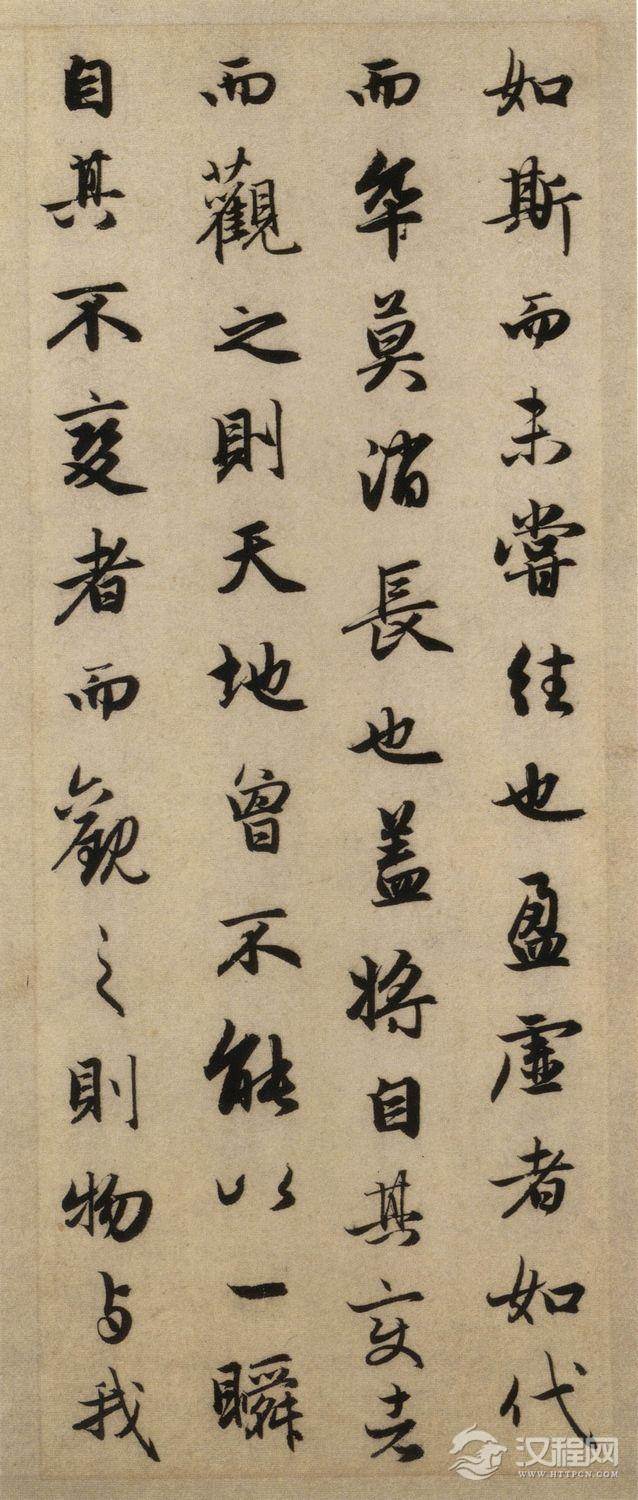 如斯而未嘗往也盈虛者如代
而卒莫消長也盖將自其变者
而觀之則天地曾不能以一瞬
自其不变者而觀之則物与我
汉程网
WWW.HTTPCN.COM